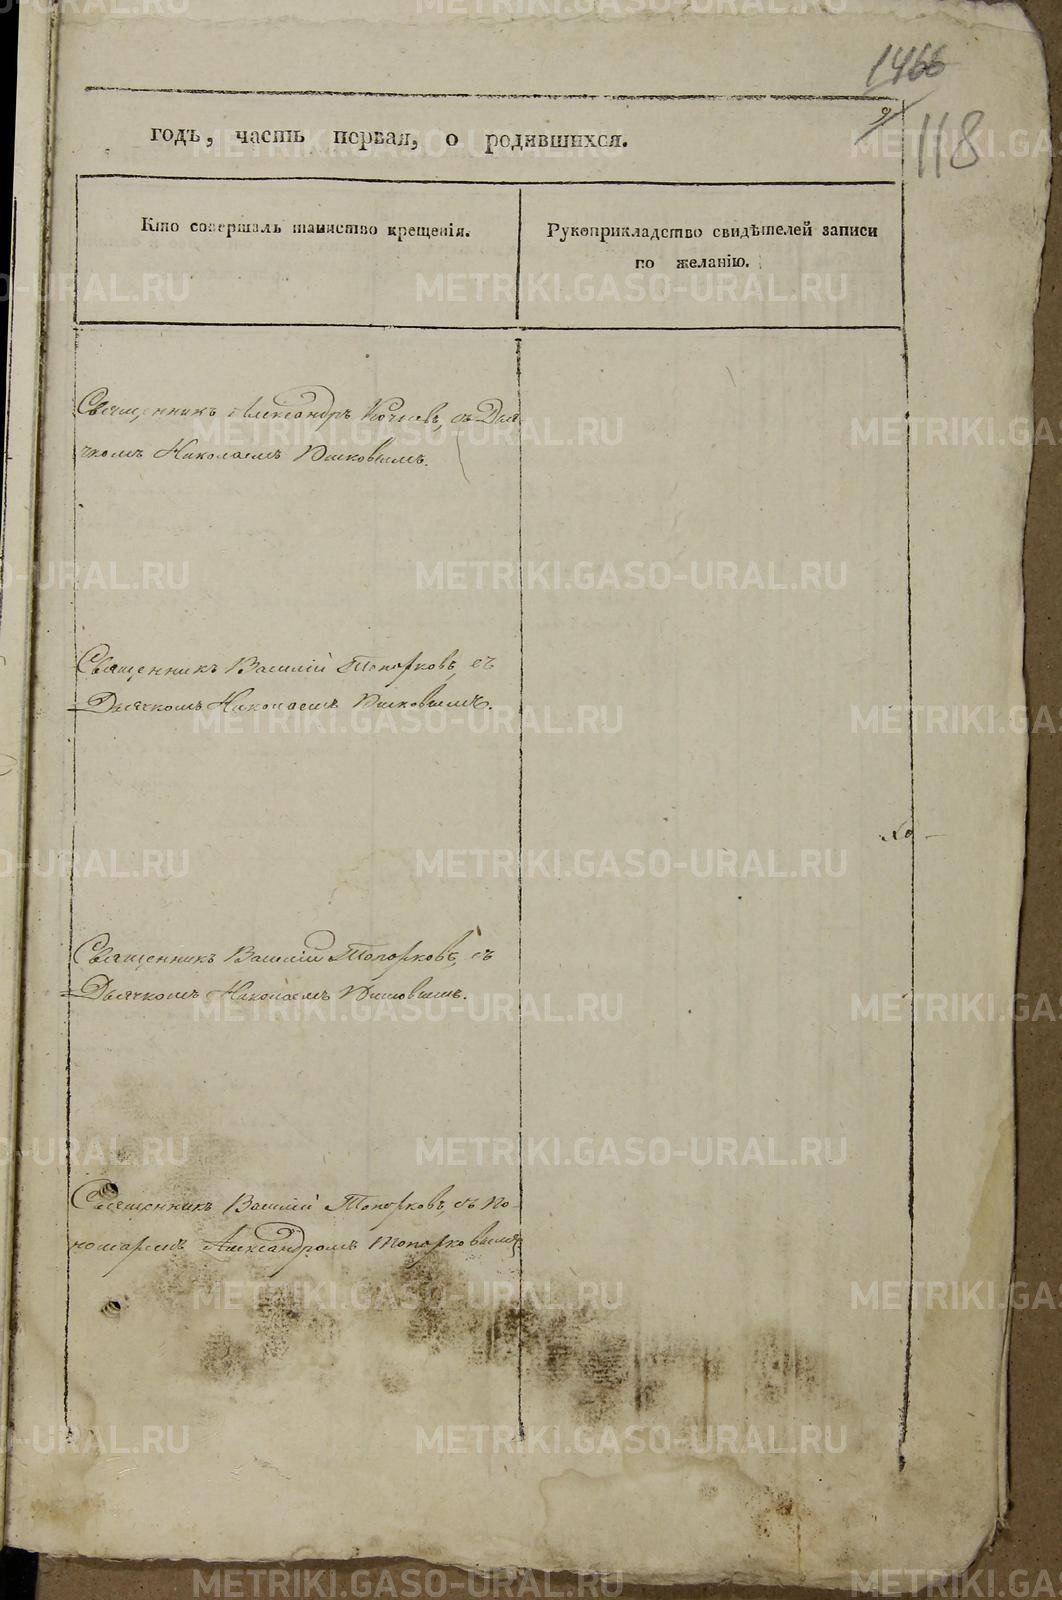 1466
118
годъ, часть первая, о родившихся.
Кто совершалъ таинство крещенія.
Рукоприкладство свидѣтелей записи
по желанію.
Священникъ Александръ Кочневъ, съ Дья-
чкомъ Николаемъ
Священникъ Василій Топорковъ, съ
Дьячкомъ Николаемъ
Священникъ Василій Топорковъ, съ
Дьячкомъ Николаемъ
Священникъ Василій Топорковъ, съ по-
номаремъ Александромъ Топорковымъ.
METRIKI.GASO-URAL.RU